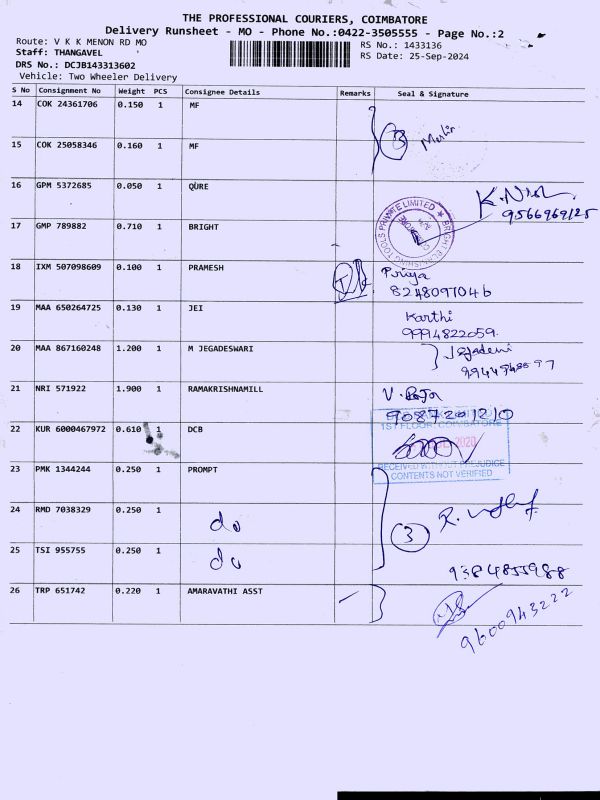 THE PROFESSIONAL COURIERS, COIMBATORE
Delivery Runsheet - MO - Phone No.:0422-3505555 - Page No.:2
Route: V K K MENON RD MO
RS No.: 1433136
Staff: THANGAVEL
RS Date: 25-Sep-2024
DRS No.: DCJB143313602
Vehicle: Two Wheeler Delivery
S No Consignment No Weight PCS Consignee Details Remarks Seal & Signature
14 COK 24361706 0.150 1 MF
3 Merlin
15 COK 25058346 0.160 1 MF
16 GPM 5372685 0.050 1 QURE
9566969125
17 GMP 789882 0.710 1 BRIGHT
BRIGHT BURNISHING TOOLS PRIVATE LIMITED
18 IXM 507098609 0.100 1 PRAMESH Priya
8248097046
19 MAA 650264725 0.130 1 JEI Karthi
9994822059
20 MAA 867160248 1.200 1 M JEGADESWARI
21 NRI 571922 1.900 1 RAMAKRISHNAMILL
9087201210
22 KUR 6000467972 0.610 1 DCB
1ST FLOOR, COIMBATORE
2020
RECEIVED WITHOUT PREJUDICE
CONTENTS NOT VERIFIED
23 PMK 1344244 0.250 1 PROMPT
24 RMD 7038329 0.250 1 do
3
25 TSI 955755 0.250 1 do
9384855988
26 TRP 651742 0.220 1 AMARAVATHI ASST
9600943222